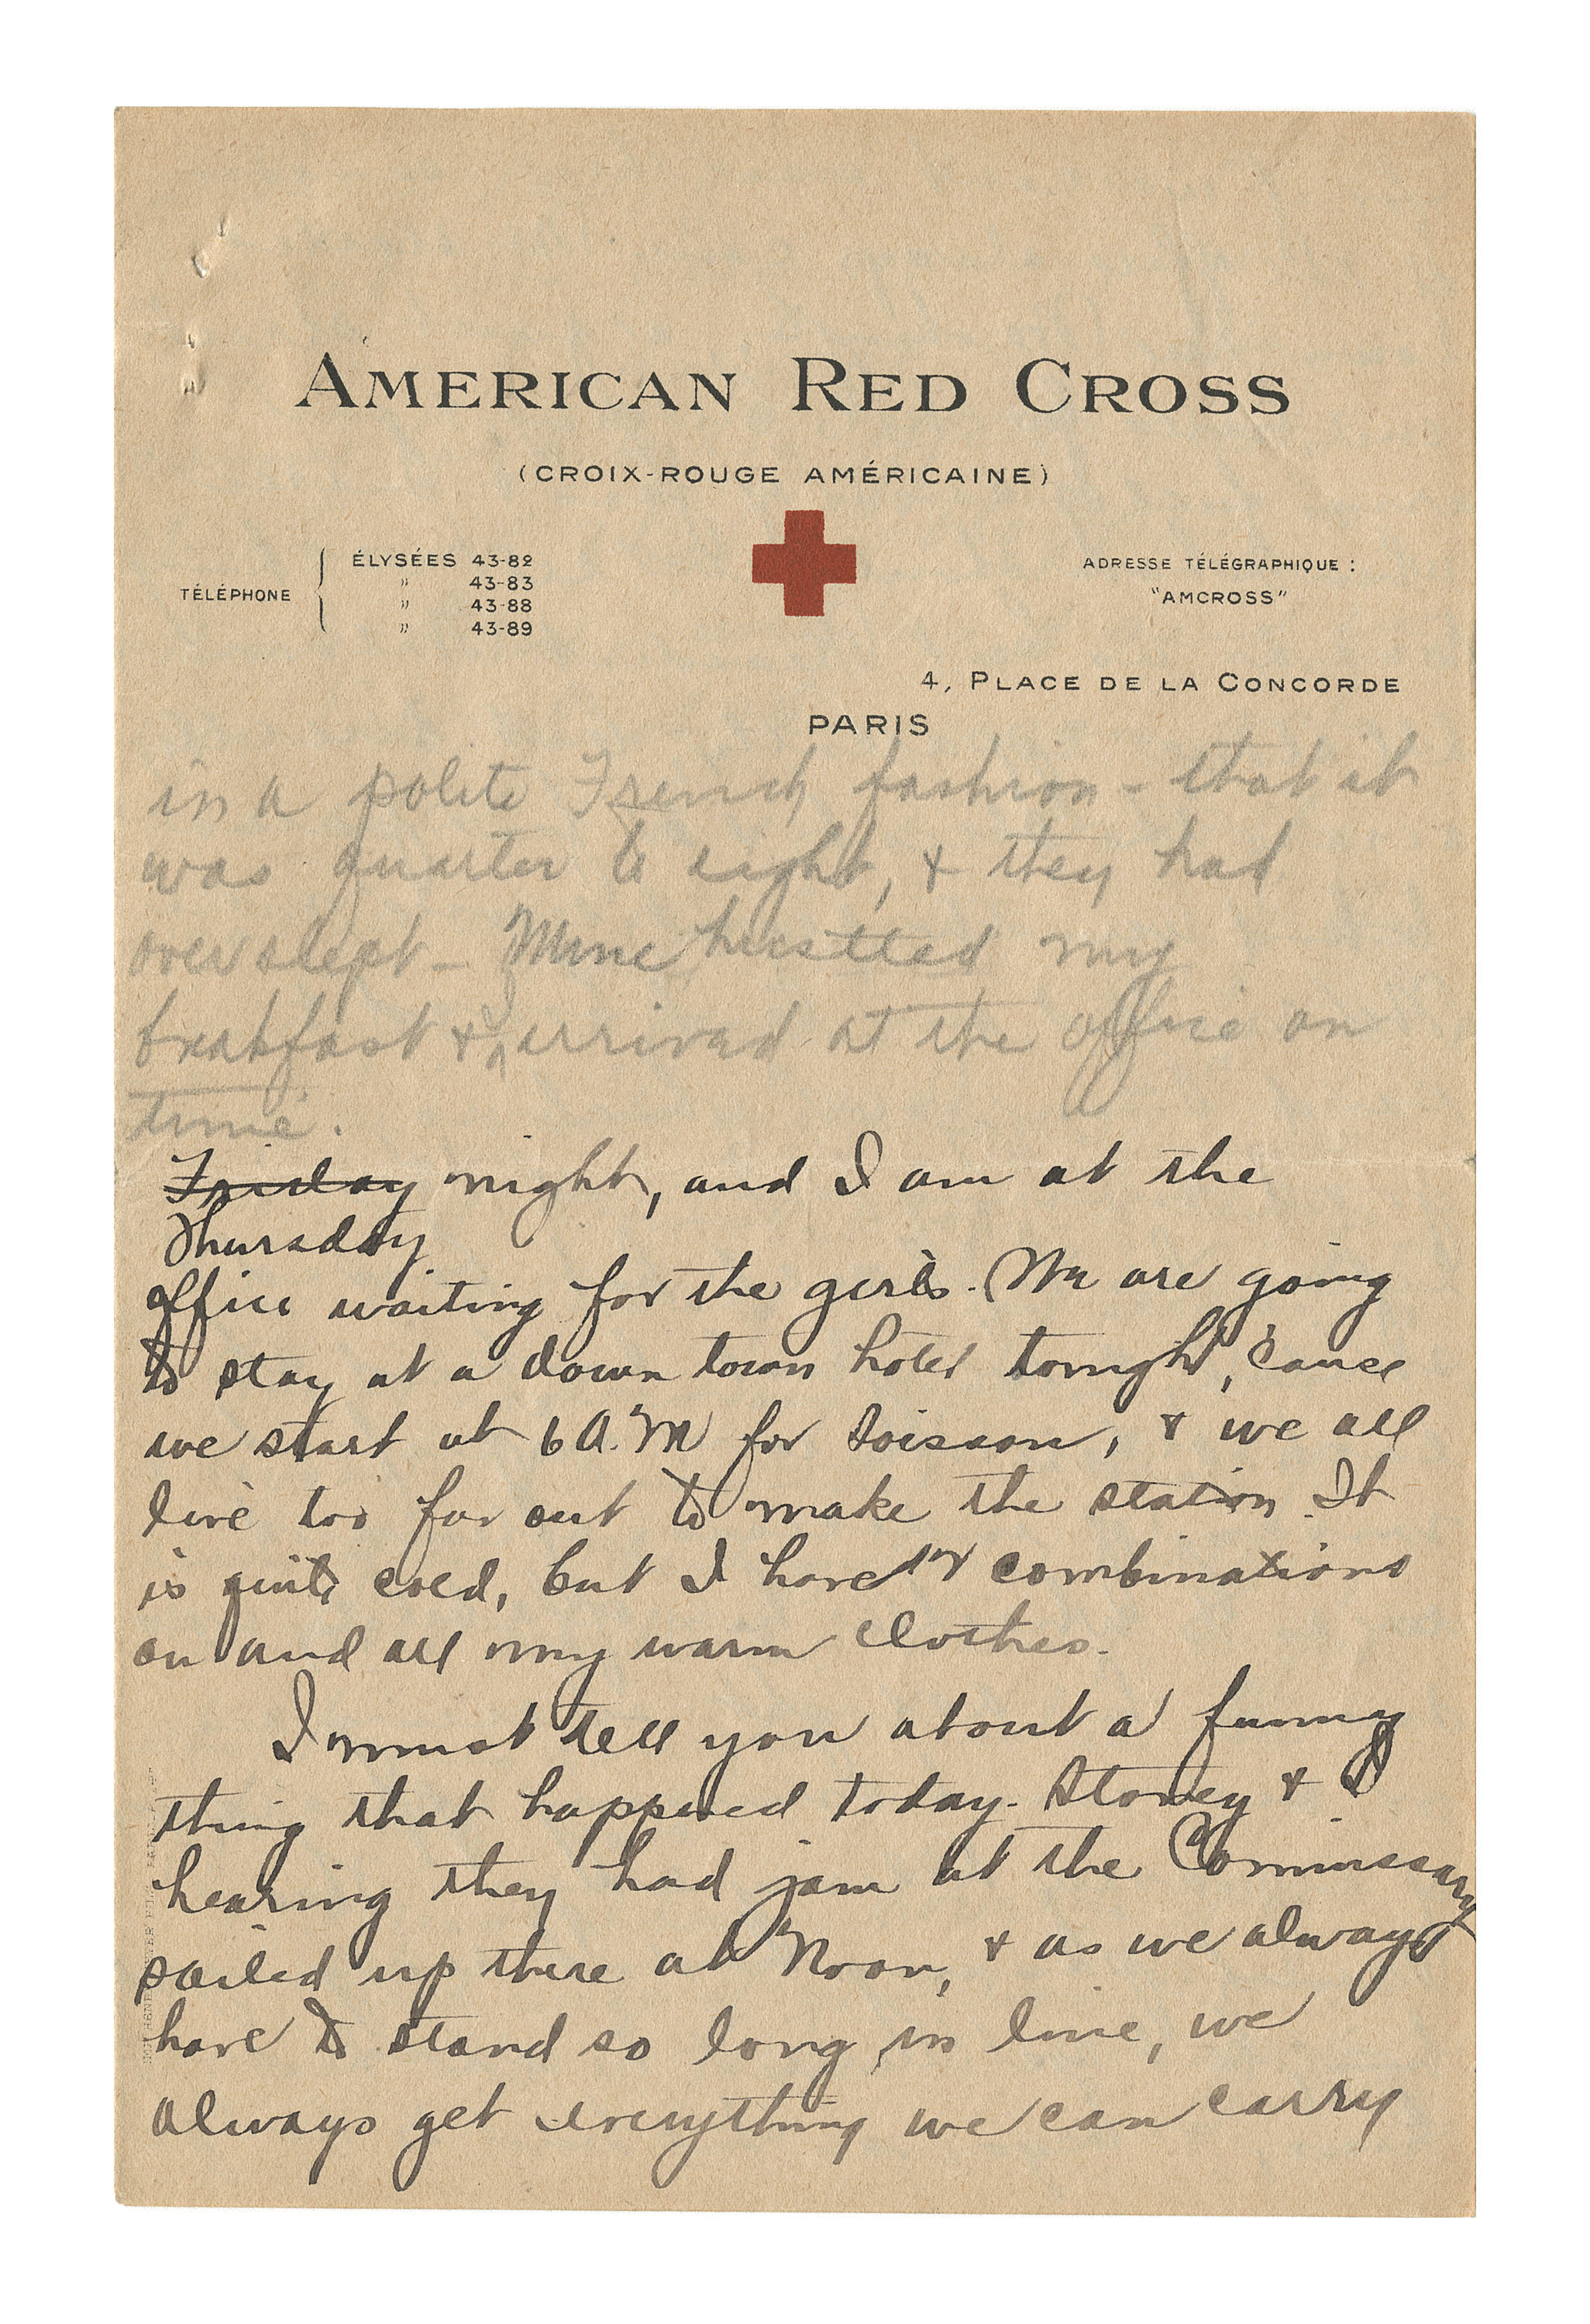 AMERICAN RED CROSS
(CROIX-ROUGE AMÉRICAINE)
TÉLÉPHONE
ÉLYSÉES 43-82
" 43-83
" 43-88
" 43-89
ADRESSE TÉLÉGRAPHIQUE :
"AMCROSS"
4, PLACE DE LA CONCORDE
PARIS
in a polite French fashion - that it
was quarter to eight, & they had
overslept - Mme hustled my
breakfast & arrived at the office on
time.
Friday night, and I am at the
Thursday
office waiting for the girls. We are going
to stay at a down town hotel tonight, 'cause
we start at 6 A.M for Soisson, & we all
live too far out to make the station. It
is quite cold, but I have combinations
on and all my warm clothes.
I must tell you about a funny
thing that happened today. Storey & I
hearing they had jam at the Commissary
sailed up there at Noon, & as we always
have to stand so long in line, we
always get everything we can carry